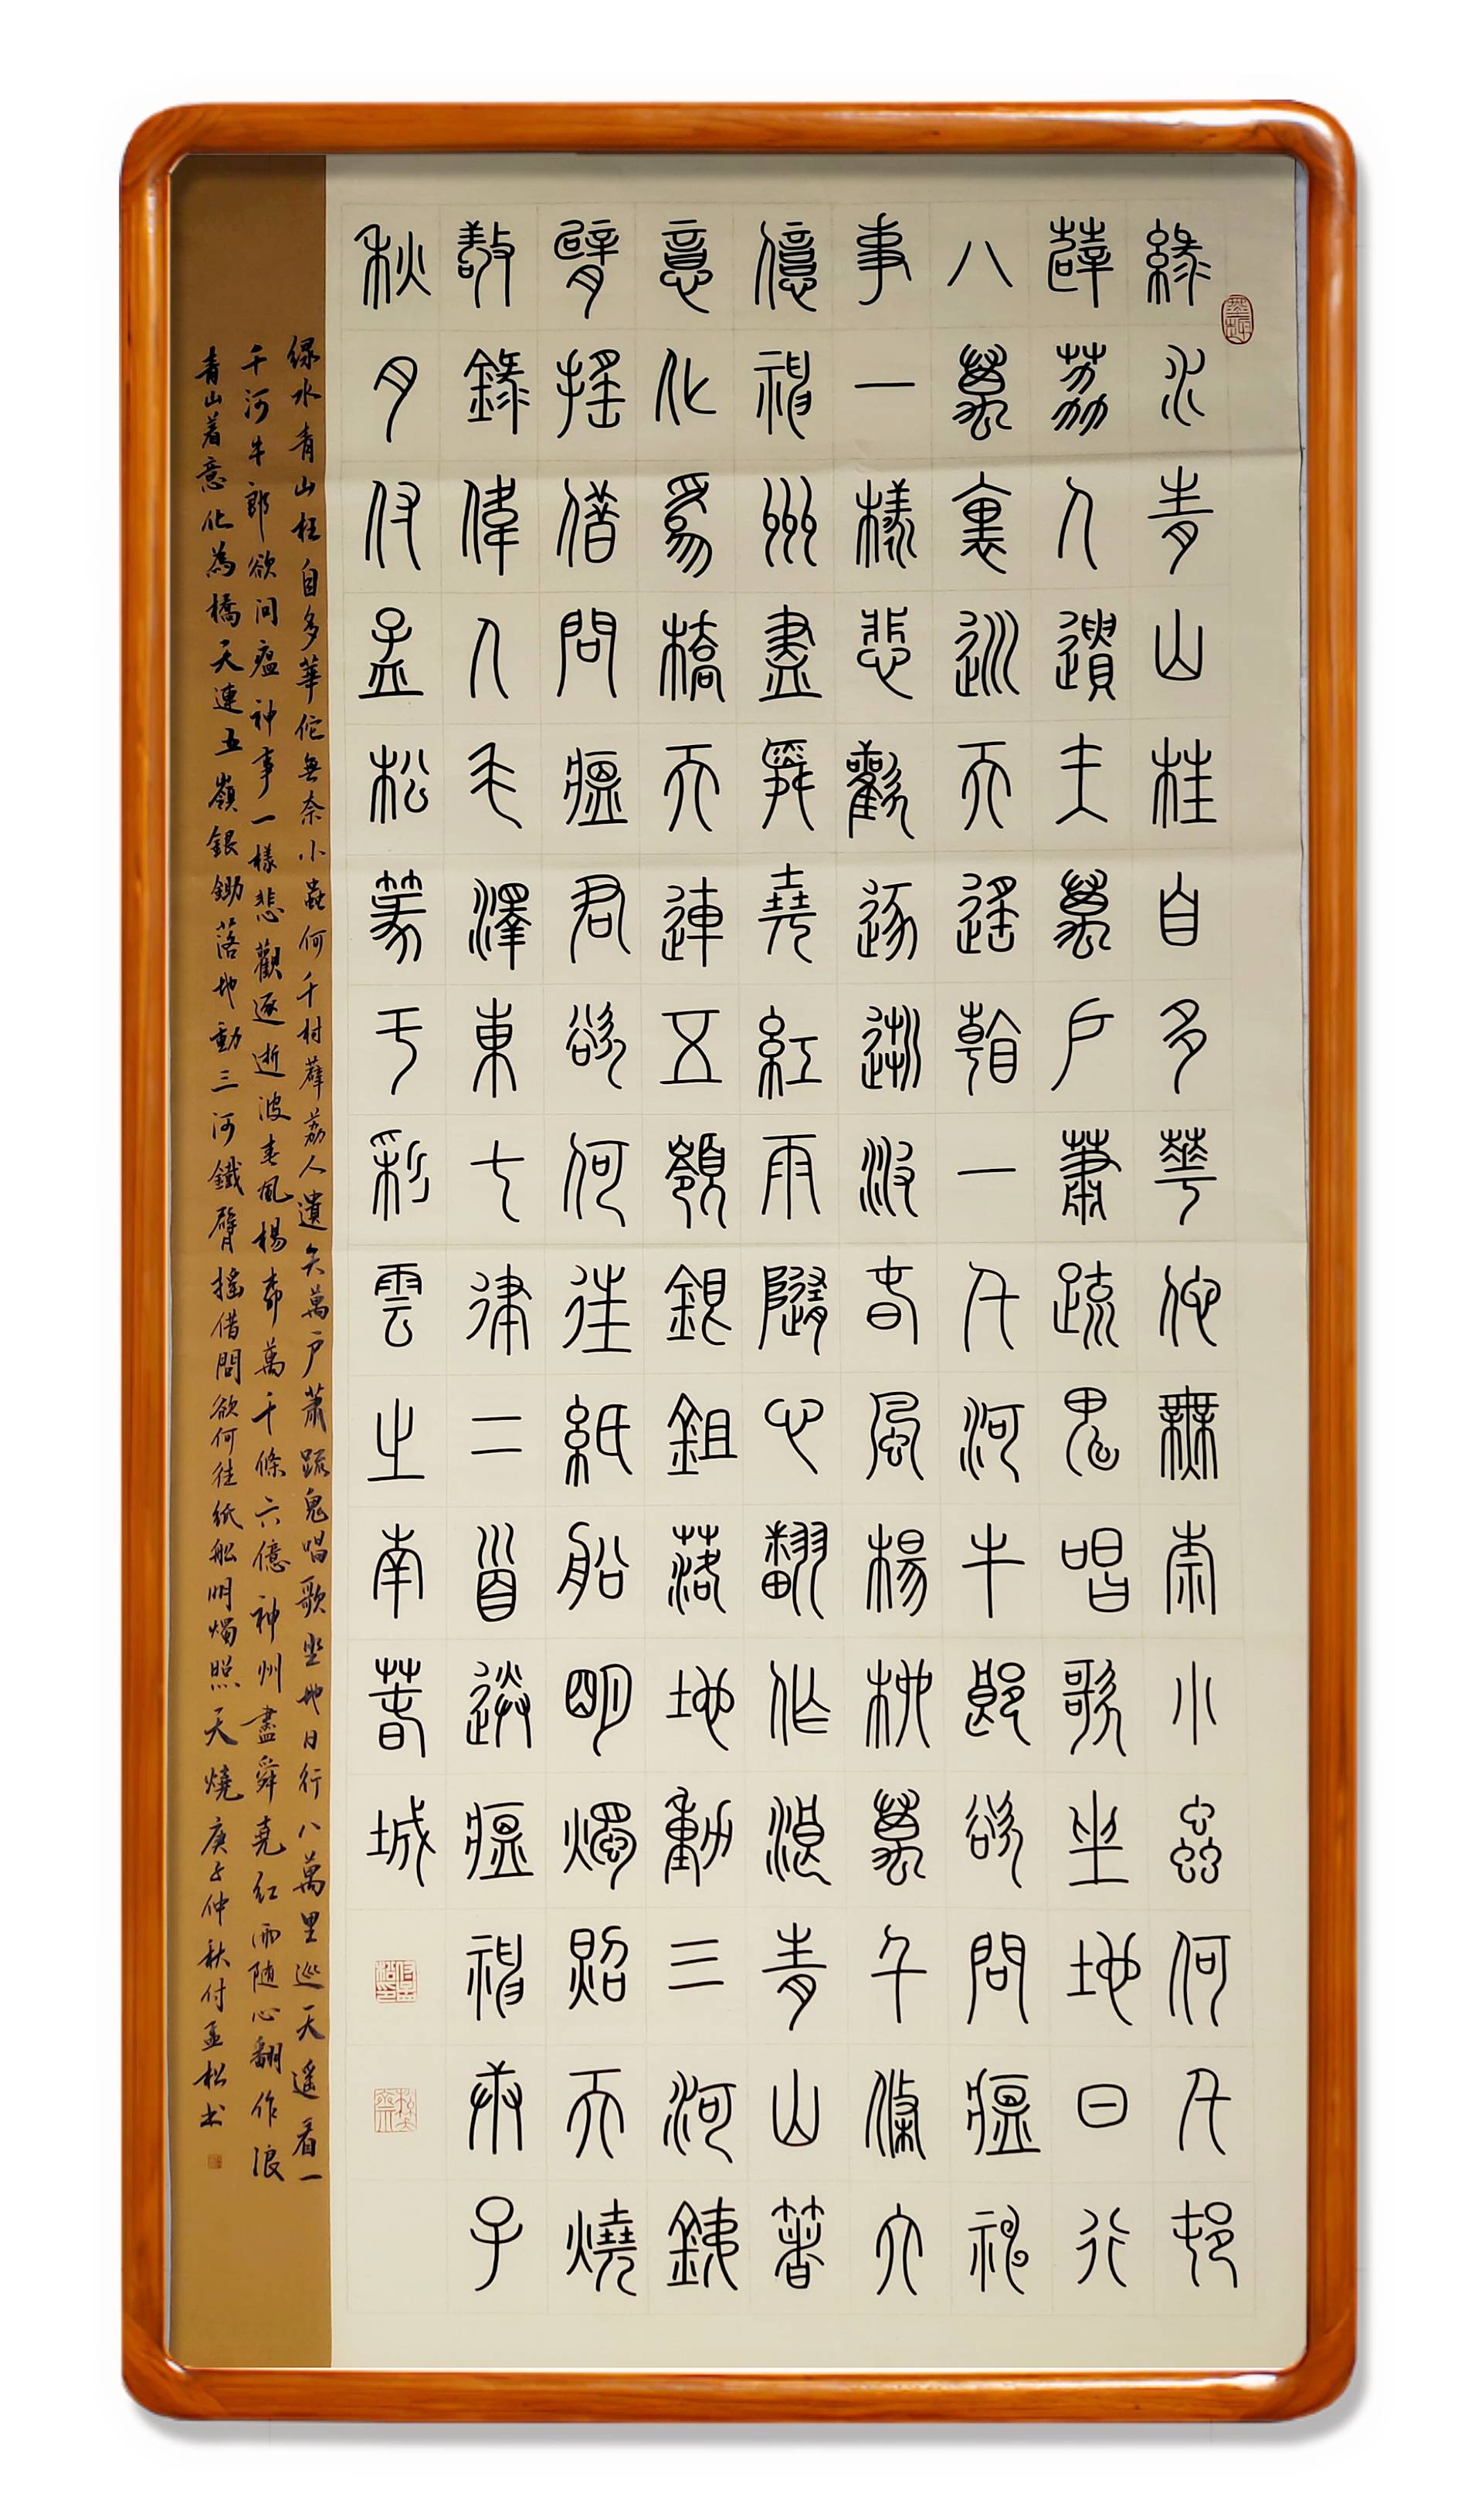 綠水青山枉自多華佗無奈小蟲何千村
薜荔人遺矢萬戶蕭疏鬼唱歌坐地日行
八萬裏巡天遙看一千河牛郎欲問瘟神
事一樣悲觀逐逝波春風楊柳萬千條六
億神州盡舜堯紅雨隨心翻作浪青山著
意化為橋天連五嶺銀鉏落地動三河鐵
臂搖借問瘟君欲何往紙船明燭照天燒
敬錄偉人毛澤東七律二首送瘟神庚子
秋月付孟松篆于彩雲之南春城
绿水青山枉自多華佗無奈小蟲何千村薜荔人遺矢萬户蕭疏鬼唱歌坐地日行八萬里巡天遥看一
千河牛郎欲问瘟神事一樣悲觀逐逝波春風楊柳萬千條六億神州盡舜堯红雨随心翻作浪
青山着意化為橋天連五嶺銀鋤落地動三河鐵臂摇借問欲何往紙船明燭照天燒庚子仲秋付孟松书